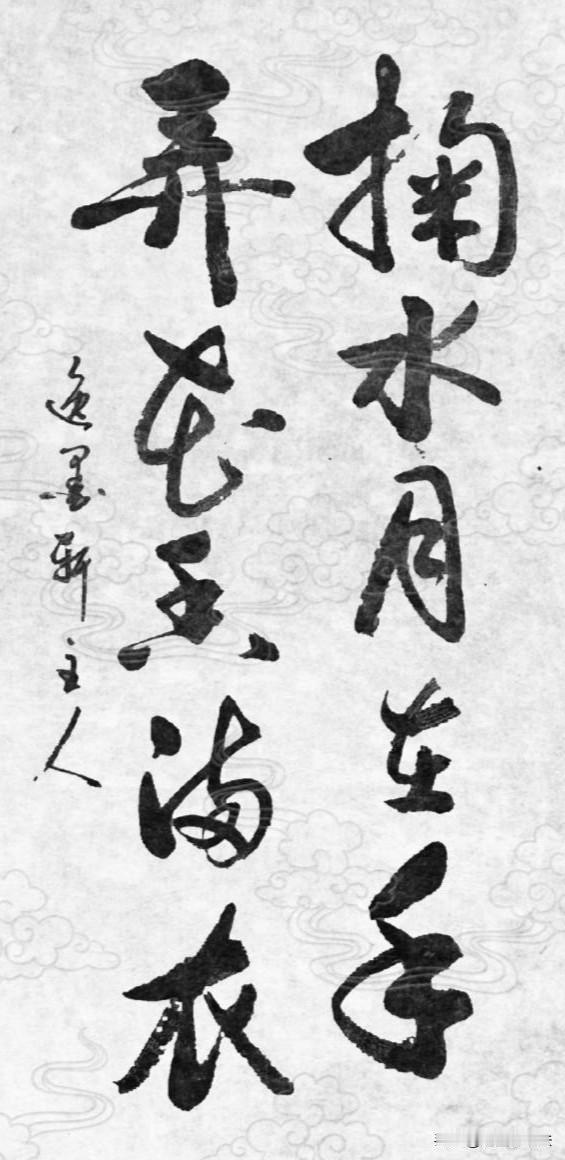 掬水月在手
弄花香满衣
逸墨轩主人